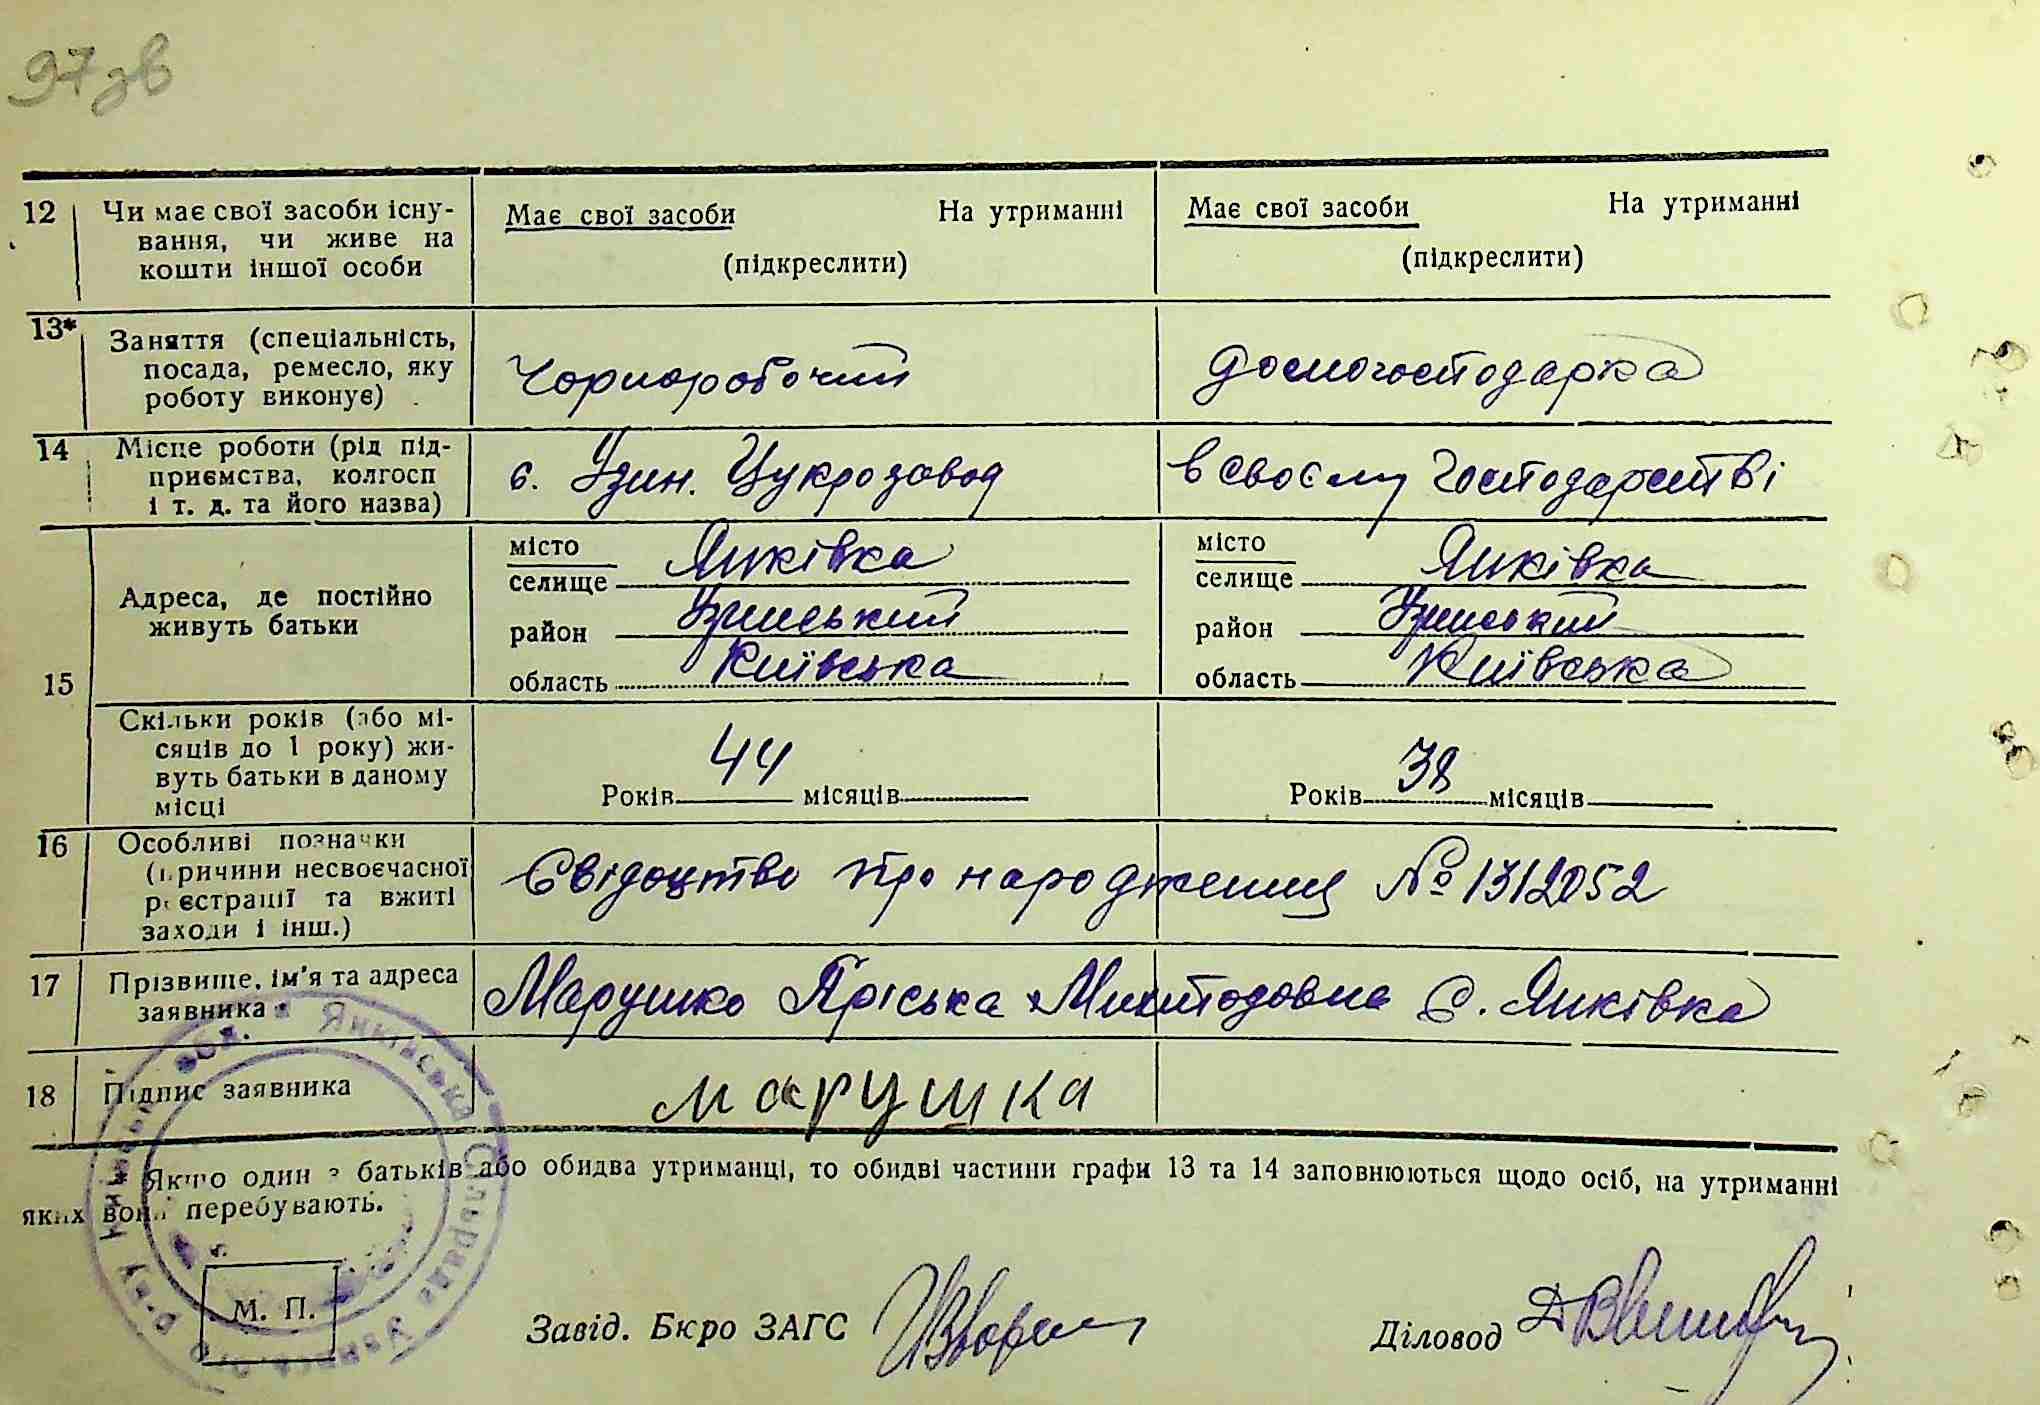 97зв
12 Чи має свої засоби існу-
вання, чи живе на
кошти іншої особи
Має свої засоби На утриманні
(підкреслити)
Має свої засоби На утриманні
(підкреслити)
13* Заняття (спеціальність,
посада, ремесло, яку
роботу виконує)
Чорноробочий
Домогосподарка
14 Місце роботи (рід під-
приємства, колгосп
і т. д. та його назва)
с. Узин. Цукрозавод
в своєму господарстві
15 Адреса, де постійно
живуть батьки
місто
селище Янківка
район Узинський
область Київська
місто
селище Янківка
район Узинський
область Київська
Скільки років (або мі-
сяців до 1 року) жи-
вуть батьки в даному
місці
Років 44 місяців
Років 38 місяців
16 Особливі позначки
(причини несвоєчасної
реєстрації та вжиті
заходи і інш.)
Свідоцтво про народження № 1312052
17 Прізвище, ім'я та адреса
заявника
Марушко Пріська с. Янківка
18 Підпис заявника
марушка
* Якщо один з батьків або обидва утриманці, то обидві частини графи 13 та 14 заповнюються щодо осіб, на утриманні
яких вони перебувають.
Янківська Сільрада
М. П.
Завід. Бюро ЗАГС
Діловод